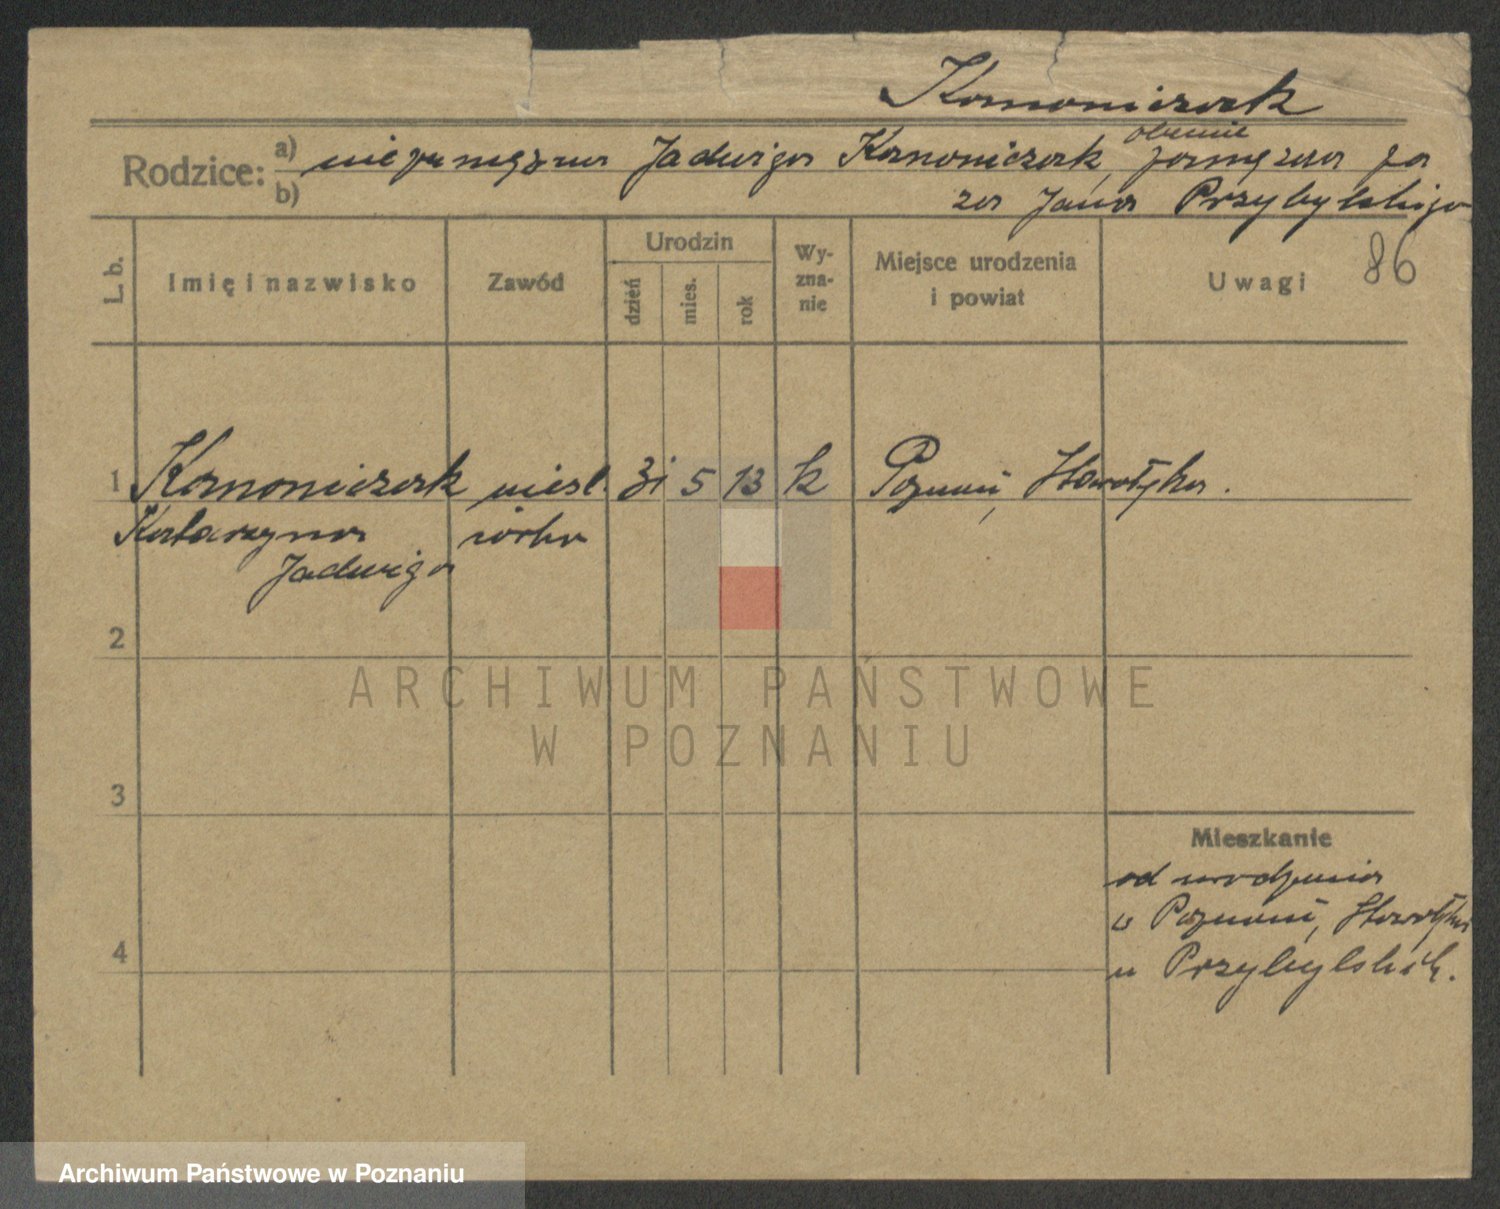 Kononiczak
Rodzice: a) niezamężna Jadwiga Kononiczak, obecnie zamężna za
b) za Jana Przybylskiego
86
L. b.
Imię i nazwisko
Zawód
Urodzin
dzień
mies.
rok
Wy-
zna-
nie
Miejsce urodzenia
i powiat
Uwagi
1 Kononiczak niesl. 31 5 13 k Poznań,
Katarzyna córka
Jadwiga
2
3
4
Mieszkanie
od urodzenia
w Poznaniu,
u Przybylskich.
ARCHIWUM PAŃSTWOWE
W POZNANIU
Archiwum Państwowe w Poznaniu